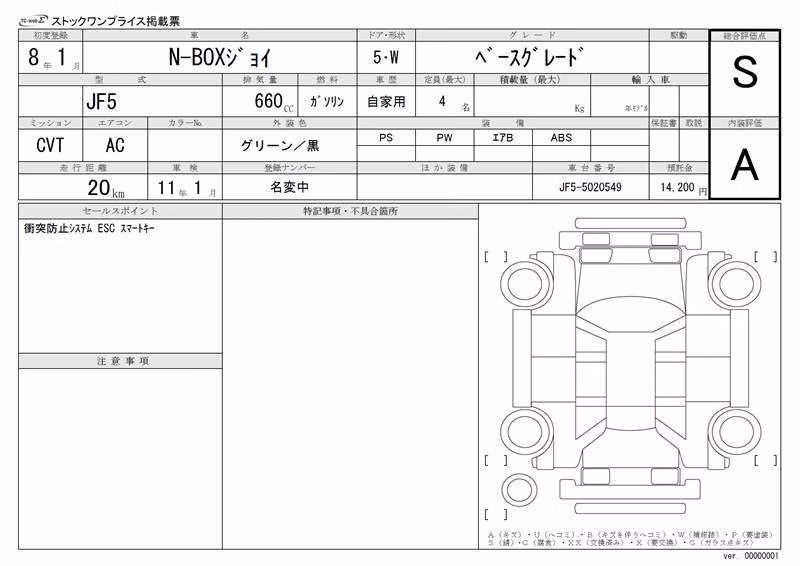 TC-webΣ ストックワンプライス掲載票
初度登録 車 名 ドア・形状 グ レ ー ド 駆動 総合評価点
8 年 1 月 N-BOXｼﾞｮｲ 5・W ﾍﾞｰｽｸﾞﾚｰﾄﾞ S
型 式 排 気 量 燃 料 車 歴 定員(最大) 積載量 (最大) 輸 入 車
JF5 660 CC ｶﾞｿﾘﾝ 自家用 4 名 Kg 年ﾓﾃﾞﾙ
ミッション エアコン カラーNo. 外 装 色 装 備 保証書 取説 内装評価
CVT AC グリーン／黒 PS PW ｴｱB ABS A
走 行 距 離 車 検 登録ナンバー ほ か 装 備 車 台 番 号 預託金
20 km 11 年 1 月 名変中 JF5-5020549 14,200 円
セールスポイント 特記事項・不具合箇所
衝突防止ｼｽﾃﾑ ESC ｽﾏｰﾄｷｰ
[ ] [ ]
注 意 事 項
[ ] [ ]
[ ]
A（キズ）・U（ヘコミ）・B（キズを伴うヘコミ）・W（補修跡）・P（要塗装）
S（錆）・C（腐食）・XX（交換済み）・X（要交換）・G（ガラス点キズ）
ver. 00000001